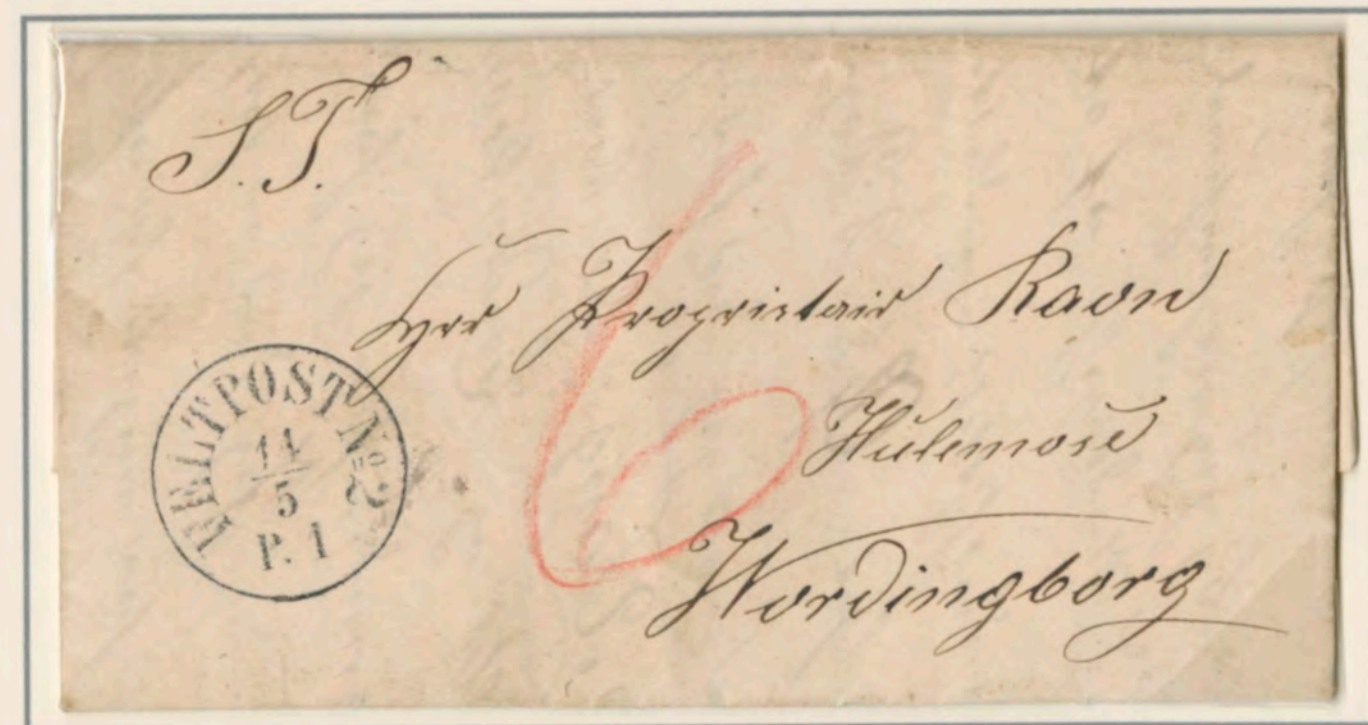 S. T.
Hrr Proprietair Ravn
Hulemose
Wordingborg
6
FELTPOST No 2
11
5
P. 1